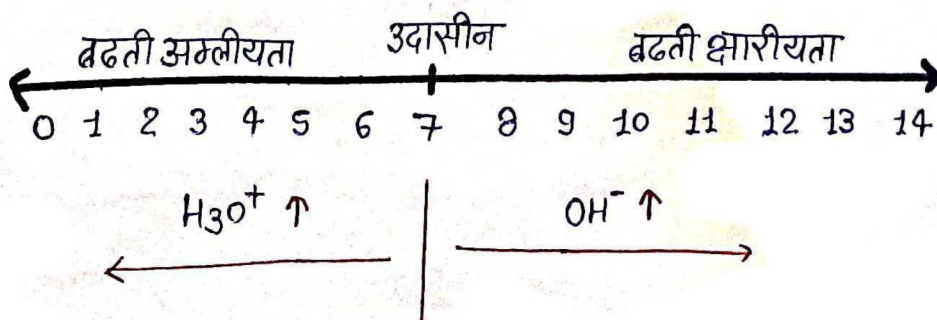 बढती अम्लीयता उदासीन बढती क्षारीयता
0 1 2 3 4 5 6 7 8 9 10 11 12 13 14
H3O⁺ ↑ OH⁻ ↑